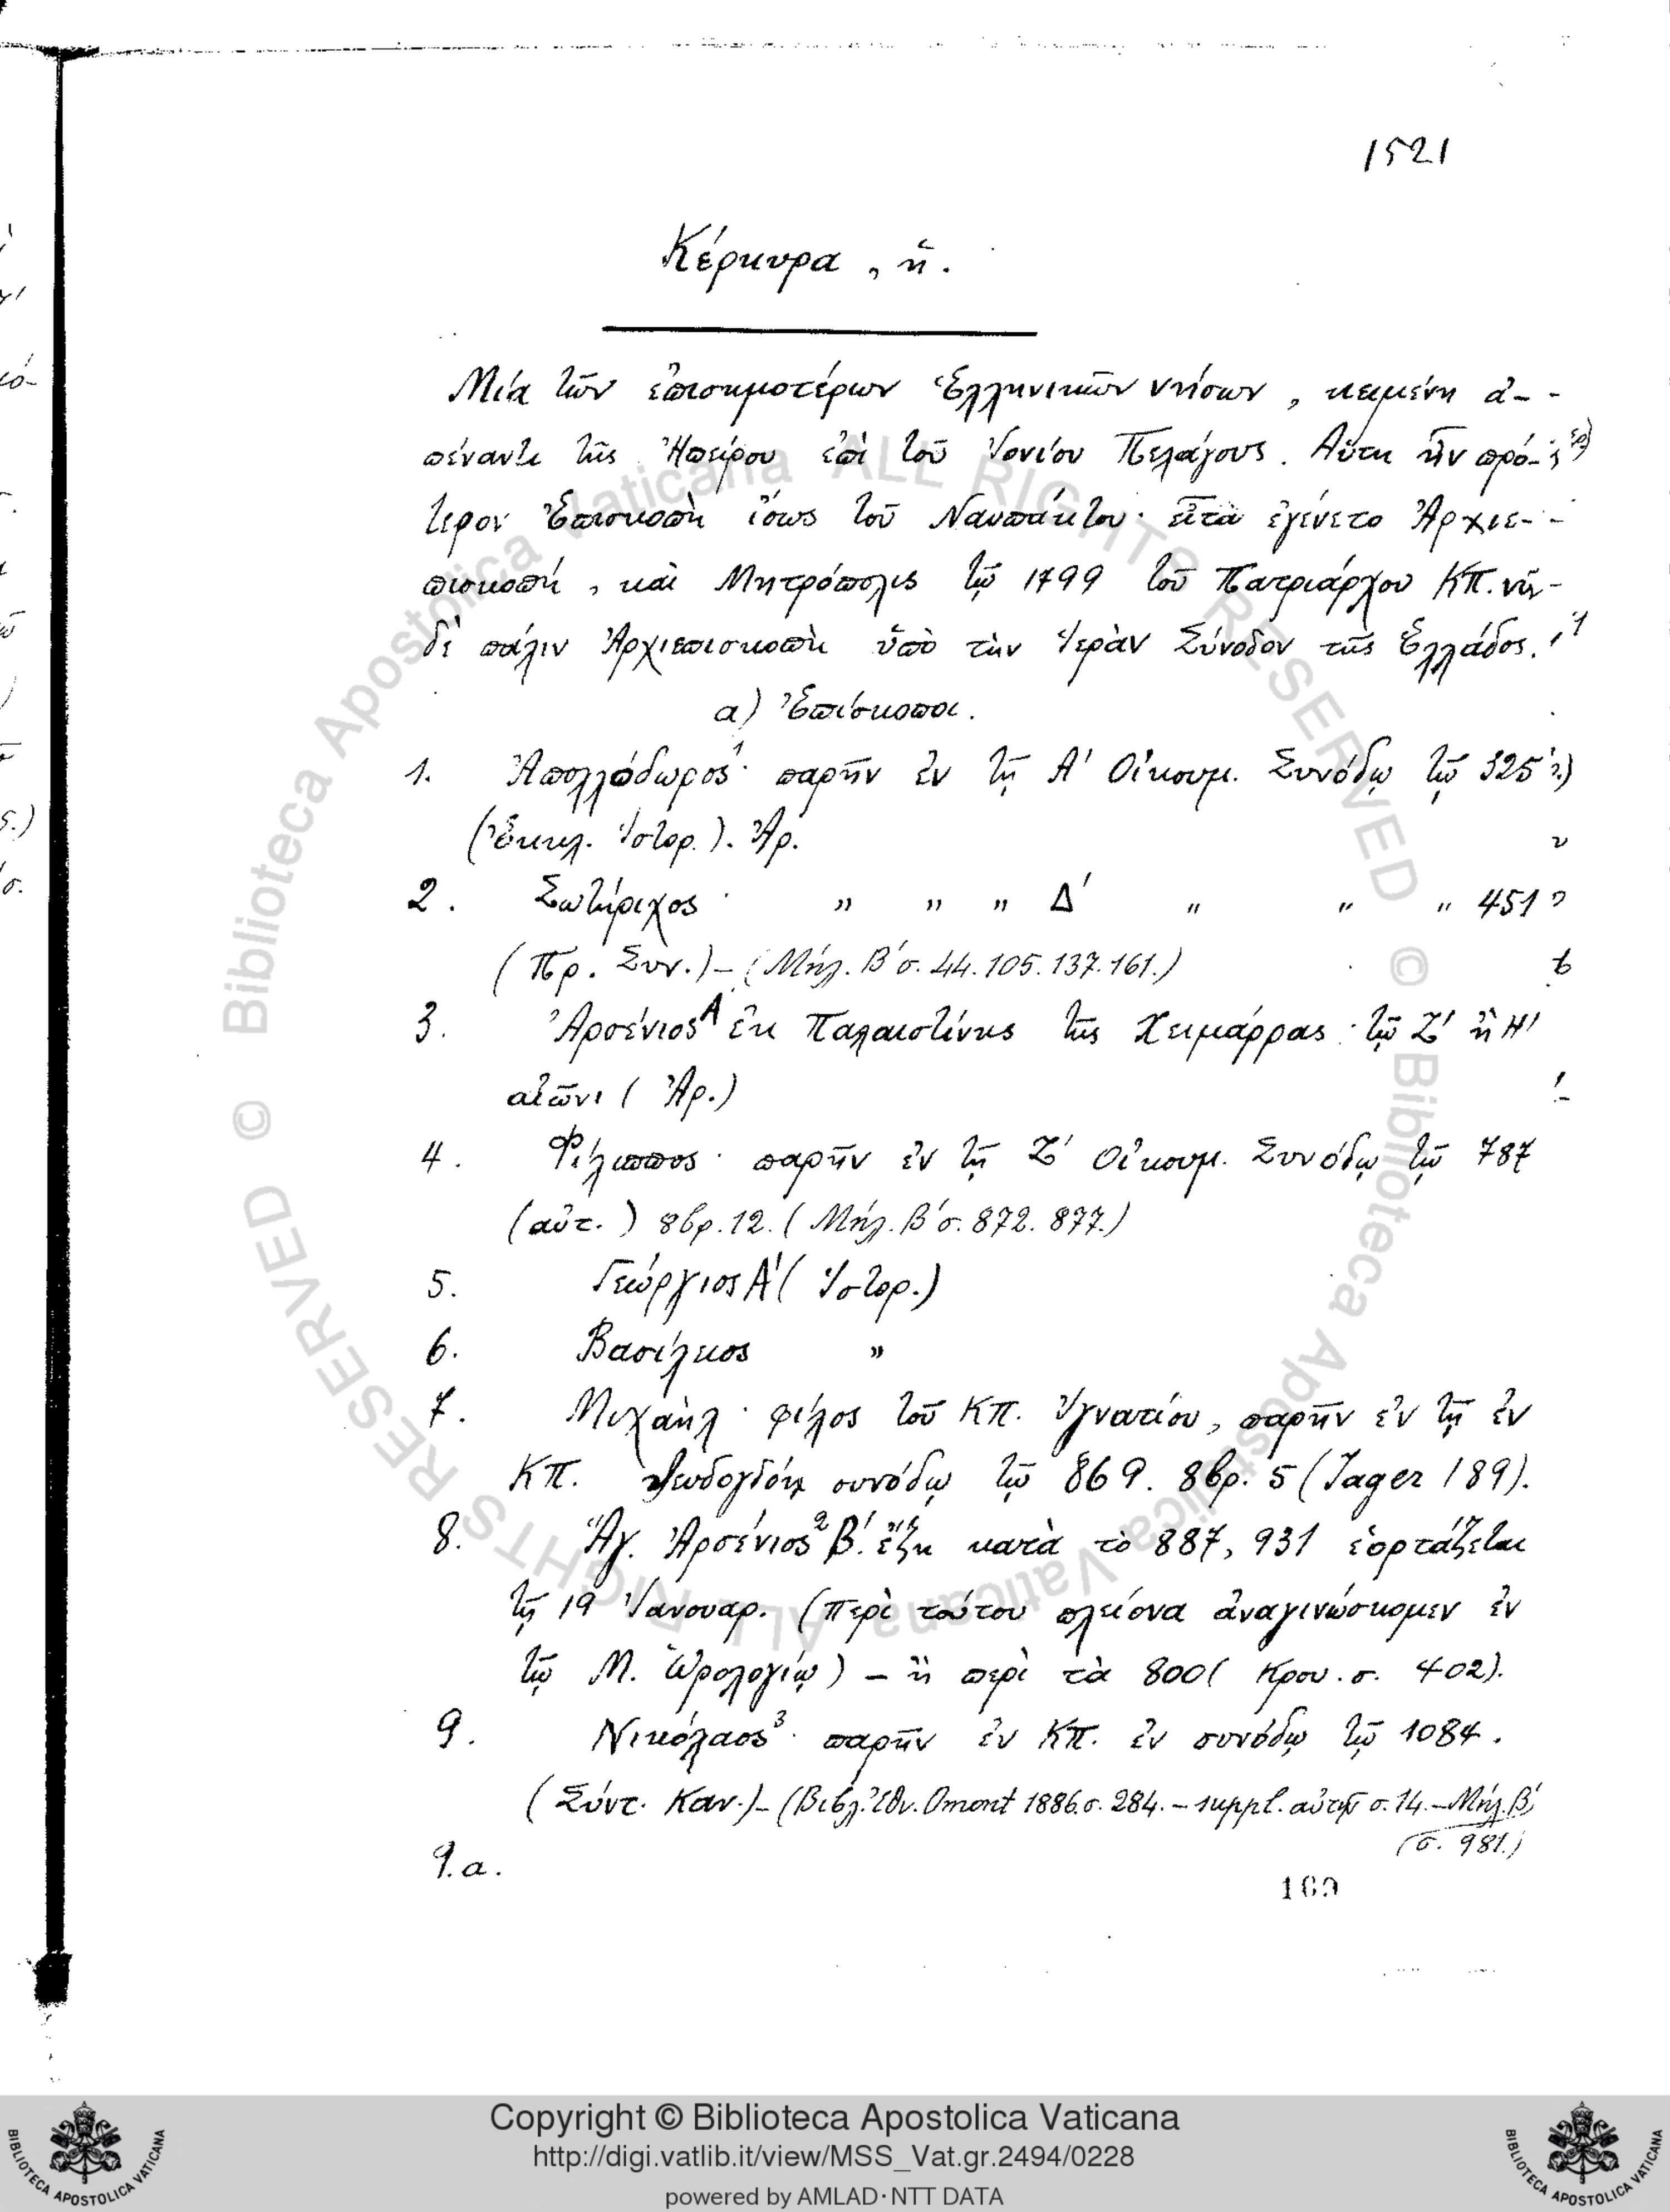 1521
Κέρκυρα, ἡ.
Μία τῶν ἐπισημοτέρων Ἑλληνικῶν νήσων, κειμένη ἀ-
πέναντι τῆς Ἠπείρου ἐπὶ τοῦ Ἰονίου Πελάγους. Αὕτη ἦν πρό-
τερον Ἐπισκοπὴ ἴσως τοῦ Ναυπάκτου· εἶτα ἐγένετο Ἀρχιε-
πισκοπή, καὶ Μητρόπολις τῷ 1799 τοῦ Πατριάρχου ΚΠ. νῦν
δὲ πάλιν Ἀρχιεπισκοπὴ ὑπὸ τὴν Ἱερὰν Σύνοδον τῆς Ἑλλάδος.
α) Ἐπίσκοποι.
1. Ἀπολλόδωρος¹· παρῆν ἐν τῇ Α' Οἰκουμ. Συνόδῳ τῷ 325
(Ἐκκλ. Ἱστορ.). Ἀρ.
2. Σωτήριχος· " " " Δ' " " " 451
(Πρ. Συν.) – (Μήλ. Β' σ. 44. 105. 137. 161.)
3. Ἀρσένιος Α' ἐκ Παλαιστίνης τῆς Χειμάρρας· τῷ Ζ' ἢ Η'
αἰῶνι (Ἀρ.)
4. Φίλιππος· παρῆν ἐν τῇ Ζ' Οἰκουμ. Συνόδῳ τῷ 787
(αὐτ.) 8βρ. 12. (Μήλ. Β' σ. 872. 877.)
5. Γεώργιος Α' (Ἱστορ.)
6. Βασίλειος "
7. Μιχαὴλ· φίλος τοῦ ΚΠ. Ἰγνατίου, παρῆν ἐν τῇ ἐν
ΚΠ. συνόδῳ τῷ 869. 8βρ. 5 (Jager 189).
8. Ἅγ. Ἀρσένιος² Β'. ἔζη κατὰ τὸ 887, 931 ἑορτάζεται
τῇ 19 Ἰανουαρ. (Περὶ τούτου πλείονα ἀναγινώσκομεν ἐν
τῷ Μ. Ὡρολογίῳ) – ἢ περὶ τὰ 800 (Κρου. σ. 402).
9. Νικόλαος³· παρῆν ἐν ΚΠ. ἐν συνόδῳ τῷ 1084.
(Σύντ. Καν.) – (Βιβλ. Ἐθν. Omont 1886. σ. 284. – suppl. αὐτῆς σ. 14. – Μήλ. Β'
(σ. 981.)
9.α.
169
© Biblioteca Apostolica Vaticana ALL RIGHTS RESERVED © Biblioteca Apostolica Vaticana ALL RIGHTS RESERVED
Copyright © Biblioteca Apostolica Vaticana
http://digi.vatlib.it/view/MSS_Vat.gr.2494/0228
powered by AMLAD·NTT DATA
BIBLIOTECA APOSTOLICA VATICANA
BIBLIOTECA APOSTOLICA VATICANA